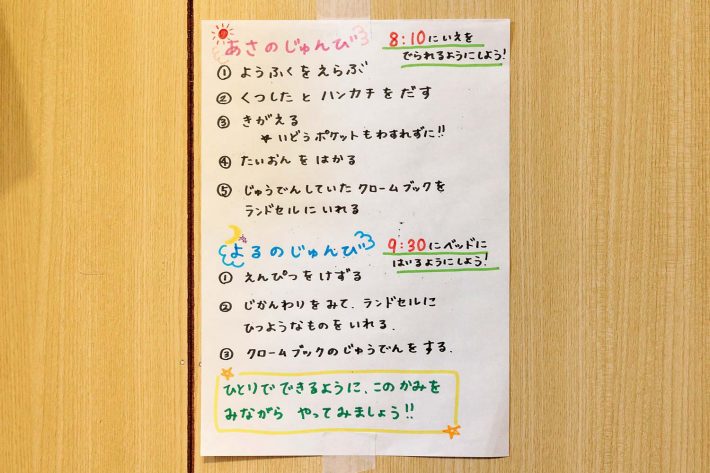 あさのじゅんび
8:10にいえを
でられるようにしよう!
① ようふくをえらぶ
② くつしたと ハンカチをだす
③ きがえる
* いどうポケットもわすれずに!!
④ たいおんをはかる
⑤ じゅうでんしていたクロームブックを
ランドセルにいれる
よるのじゅんび
9:30にベッドに
はいるようにしよう!
① えんぴつをけずる
② じかんわりをみて、ランドセルに
ひつようなものをいれる.
③ クロームブックのじゅうでんをする.
ひとりでできるように、このかみを
みながら やってみましょう!!